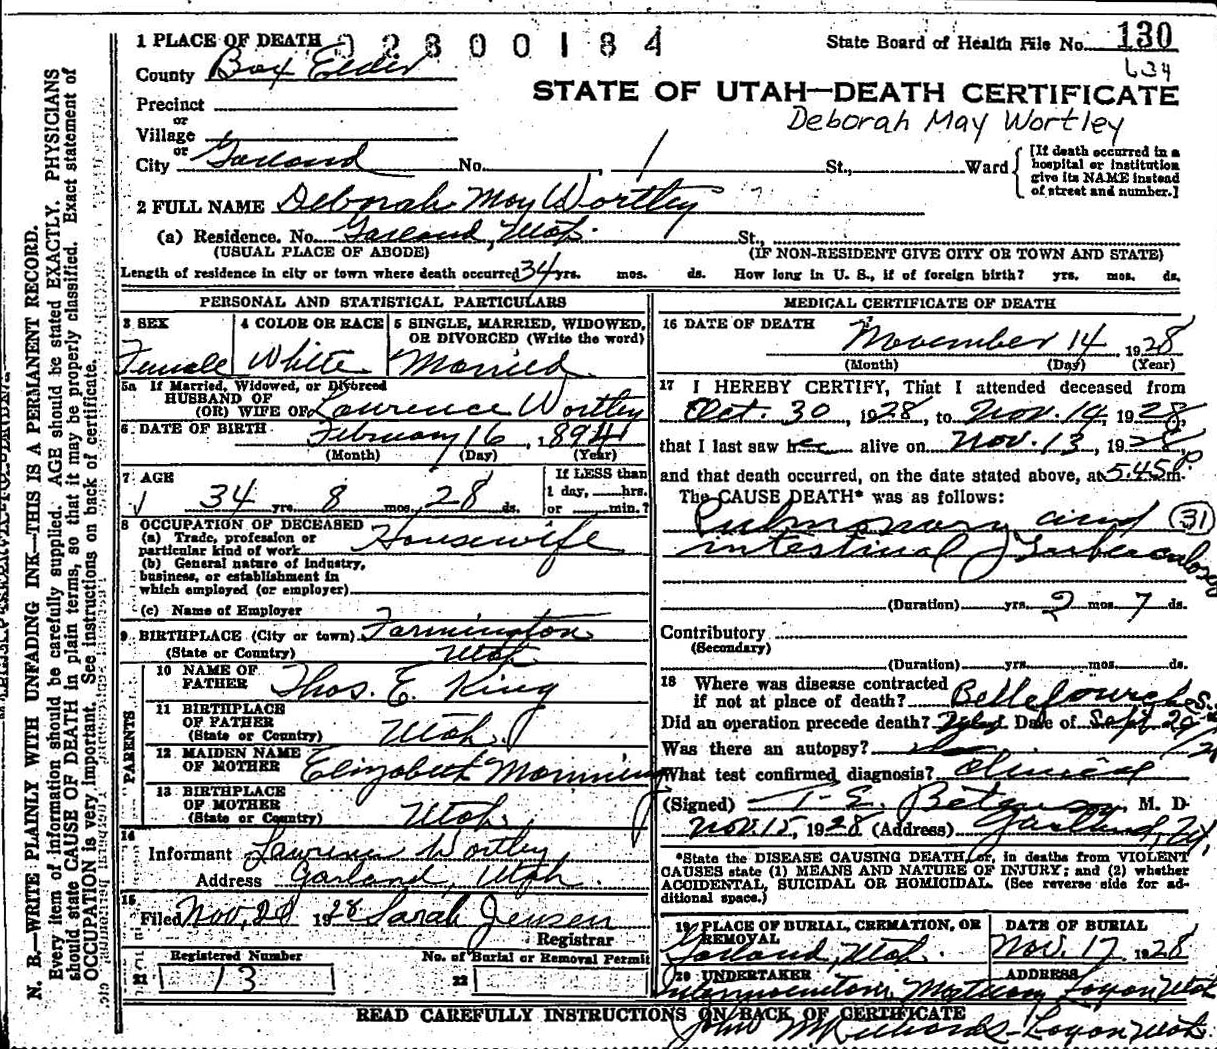 1 PLACE OF DEATH 02800184
State Board of Health File No. 130
634
County Box Elder
STATE OF UTAH—DEATH CERTIFICATE
Deborah May Wortley
Precinct
or
Village
or
City Garland No. , 1 St., Ward
[If death occurred in a
hospital or institution
give its NAME instead
of street and number.]
2 FULL NAME Deborah May Wortley
(a) Residence. No. Garland, Utah. St.,
(USUAL PLACE OF ABODE) (IF NON-RESIDENT GIVE CITY OR TOWN AND STATE)
Length of residence in city or town where death occurred 34 yrs. mos. ds. How long in U. S., if of foreign birth? yrs. mos. ds.
PERSONAL AND STATISTICAL PARTICULARS
3 SEX 4 COLOR OR RACE 5 SINGLE, MARRIED, WIDOWED,
OR DIVORCED (Write the word)
Female White Married.
5a If Married, Widowed, or Divorced
HUSBAND OF
(OR) WIFE OF Lawrence Wortley
6 DATE OF BIRTH February 16, 1894
(Month) (Day) (Year)
7 AGE If LESS than
34 yrs. 8 mos. 28 ds. 1 day, hrs.
or min.?
8 OCCUPATION OF DECEASED
(a) Trade, profession or
particular kind of work Housewife
(b) General nature of industry,
business, or establishment in
which employed (or employer)
(c) Name of Employer
9 BIRTHPLACE (City or town) Farmington
(State or Country) Utah
PARENTS
10 NAME OF
FATHER Thos. E. King
11 BIRTHPLACE
OF FATHER
(State or Country) Utah.
12 MAIDEN NAME
OF MOTHER Elizabeth Manning
13 BIRTHPLACE
OF MOTHER
(State or Country) Utah.
14
Informant Lawrence Wortley
Address Garland, Utah.
15
Filed Nov. 20 1928 Sarah Jensen
Registrar
Registered Number No. of Burial or Removal Permit
21 13 22
MEDICAL CERTIFICATE OF DEATH
16 DATE OF DEATH November 14 1928
(Month) (Day) (Year)
17 I HEREBY CERTIFY, That I attended deceased from
Oct. 30, 1928, to Nov. 14, 1928,
that I last saw her alive on Nov. 13, 1928
and that death occurred, on the date stated above, at 5.45 P. m.
The CAUSE DEATH* was as follows:
Pulmonary and (31)
intestinal Tuberculosis
(Duration) yrs. 2 mos. 7 ds.
Contributory
(Secondary)
(Duration) yrs. mos. ds.
18 Where was disease contracted
if not at place of death?
Did an operation precede death? Date of Sept. 29
Was there an autopsy?
What test confirmed diagnosis? clinical
(Signed) T. E. M. D.
Nov. 15, 1928 (Address) Garland, Ut.
*State the DISEASE CAUSING DEATH, or, in deaths from VIOLENT
CAUSES state (1) MEANS AND NATURE OF INJURY; and (2) whether
ACCIDENTAL, SUICIDAL OR HOMICIDAL. (See reverse side for ad-
ditional space.)
19 PLACE OF BURIAL, CREMATION, OR
REMOVAL DATE OF BURIAL
Garland, Utah. Nov. 17 1928
20 UNDERTAKER ADDRESS
Intermountain Mortuary Logan Utah
READ CAREFULLY INSTRUCTIONS ON BACK OF CERTIFICATE
John Logan Utah.
N. B.—WRITE PLAINLY WITH UNFADING INK—THIS IS A PERMANENT RECORD.
Every item of information should be carefully supplied. AGE should be stated EXACTLY. PHYSICIANS
should state CAUSE OF DEATH in plain terms, so that it may be properly classified. Exact statement of
OCCUPATION is very important. See instructions on back of certificate.